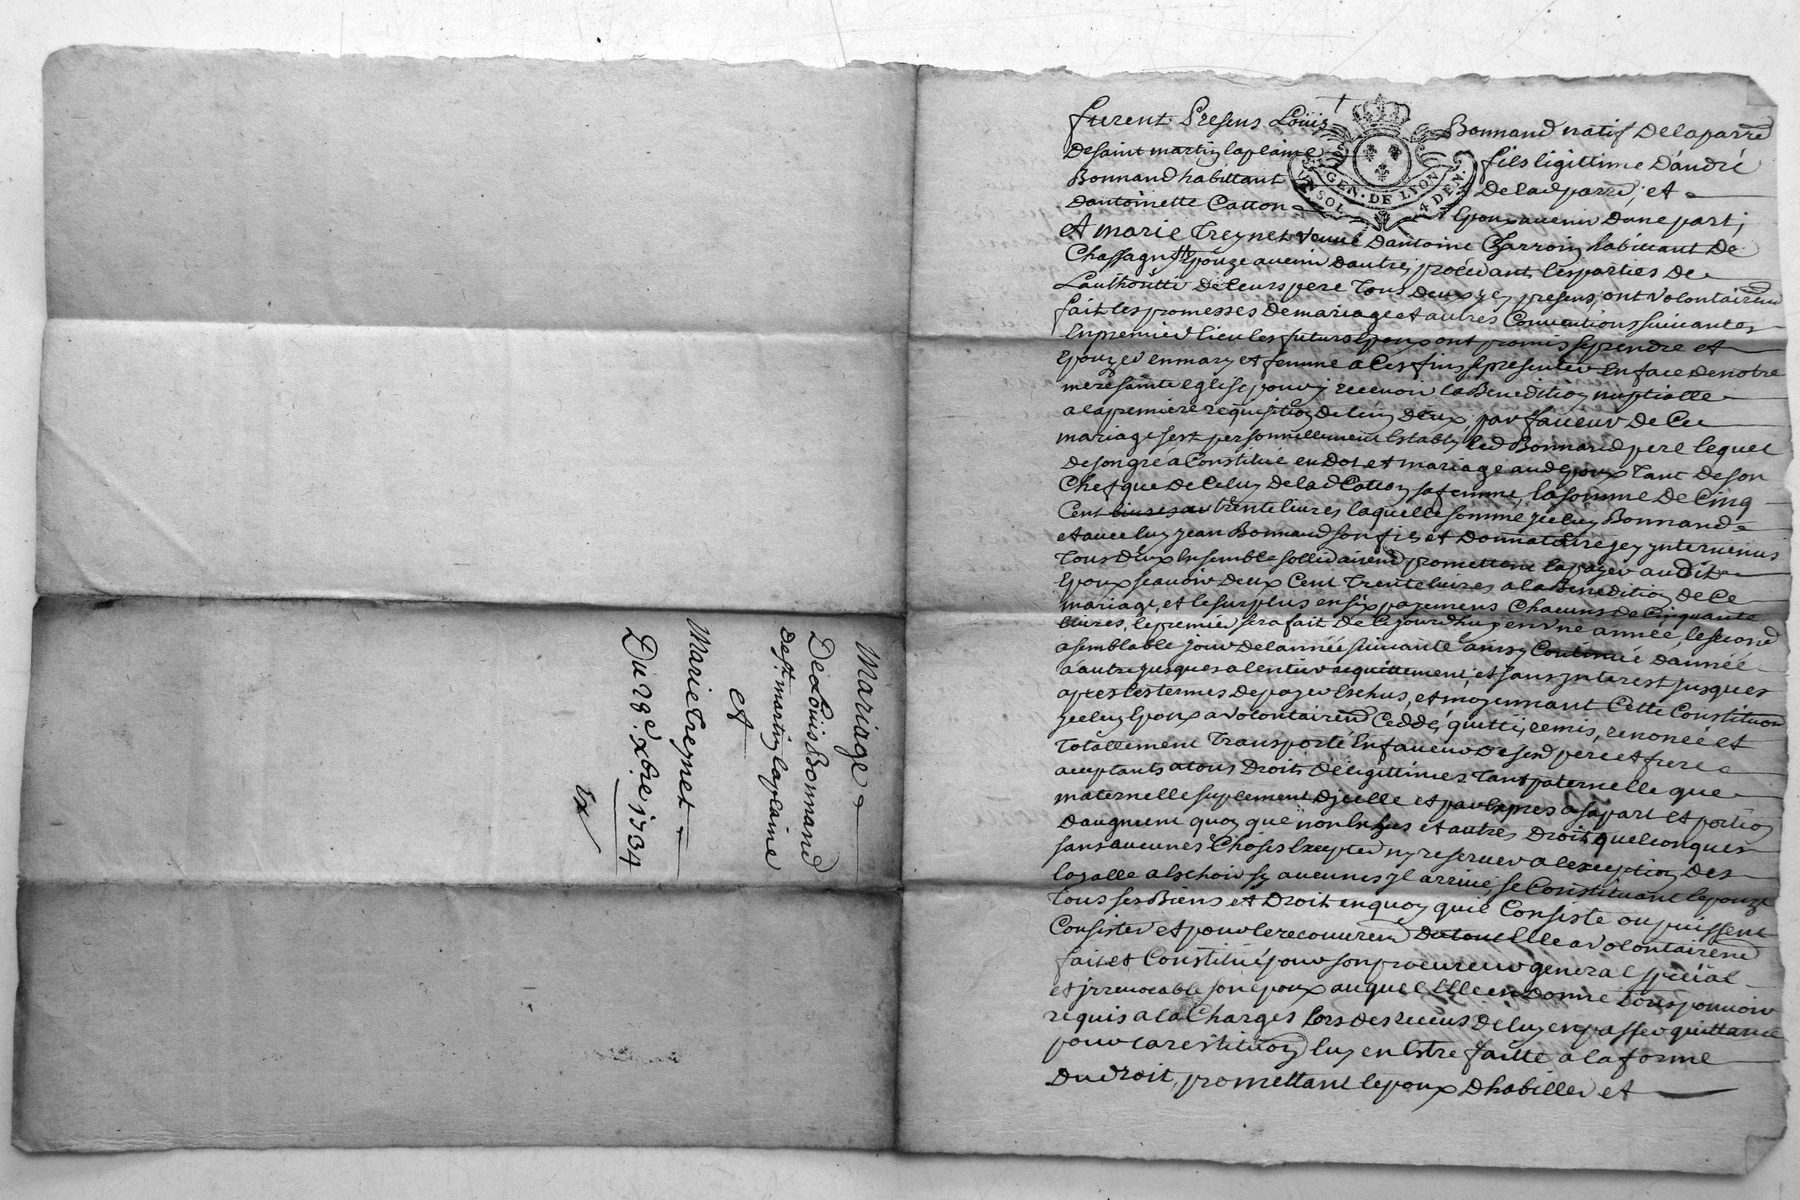 Mariage
De Louis Bonnand
de st. martin laplaine
et
Marie Treynet
Du 29e Xbre 1734
Ex
furent Presens Louis Bonnand natif de la parre
de saint martin laplaine fils ligittime d'andré
Bonnand habittant de lad parre, et
dantoinette Catton Epoux avenir dune part;
et marie Treynet veuve dantoine Charroin habittant de
Chassagny Epouze avenir dautre, procédant les parties de
Lauthoritté de leurs pere tous deux icy presens, ont volontairemt
fait les promesses de mariage et autres Conventions suivantes
En premier lieu les futurs Epoux ont promis se prendre et
Epouzer en mary et femme a Ces fins se presenter En face de notre
mere sainte eglise pour y recevoir la Benedition nuptialle
a la premiere requisition de lun deux, par faveur de Ce
mariage sest personnellement Estably led Bonnand pere lequel
de son gré a Constitué en dot et mariage aud Epoux tant de son
Chef que de Celuy de lad Catton sa femme, la somme de Cinq
Cent trente livres laquelle somme iceluy Bonnand
et avec luy jean Bonnand son fils et donnataire icy yntervenus
tous deux Ensemble sollidairemt promettent la payer audit
Epoux scavoir deux Cent trente livres a la Benedition de Ce
mariage, et le surplus en six payemens Chacuns de Cinquante
livres, le premier sera fait de Ce jourdhuy en vne année, le second
a semblable jour de lannée suivante ainsy Continué dannée
a autre jusques a lentier acquittement, et sans ynterest jusques
apres les termes de payer Eschus, et moyennant Cette Constitution
icelluy Epoux a volontairemt Ceddé, quitté, remis, renoncé et
totallement transporté En faveur de sesd pere et frere
acceptants a tous droits de legittimes tant paternelle que
maternelle suplement dicelle et par Expres a sa part et portion
daugment quoy que non Eschus et autres droits quelconques
sans aucunes Choses Excepter ny reserver a lexception des
loyalle a Eschoir sy aucunes yl arrive, se Constituant lepouze
tous ses Biens et droit en quoy quil Consiste ou puissent
Consister et pour le recouvremt Elle a volontairemt
fait et Constitué pour son procureur general special
et jrrevocable son epoux auquel Elle en donne tous pouvoir
requis a la Charges Lors des receus de luy en passer quittance
pour la restitution luy en Estre faitte a la forme
du droit, promettant lepoux dhabiller et
GEN · DE LYON
UN SOL 4 DEN.